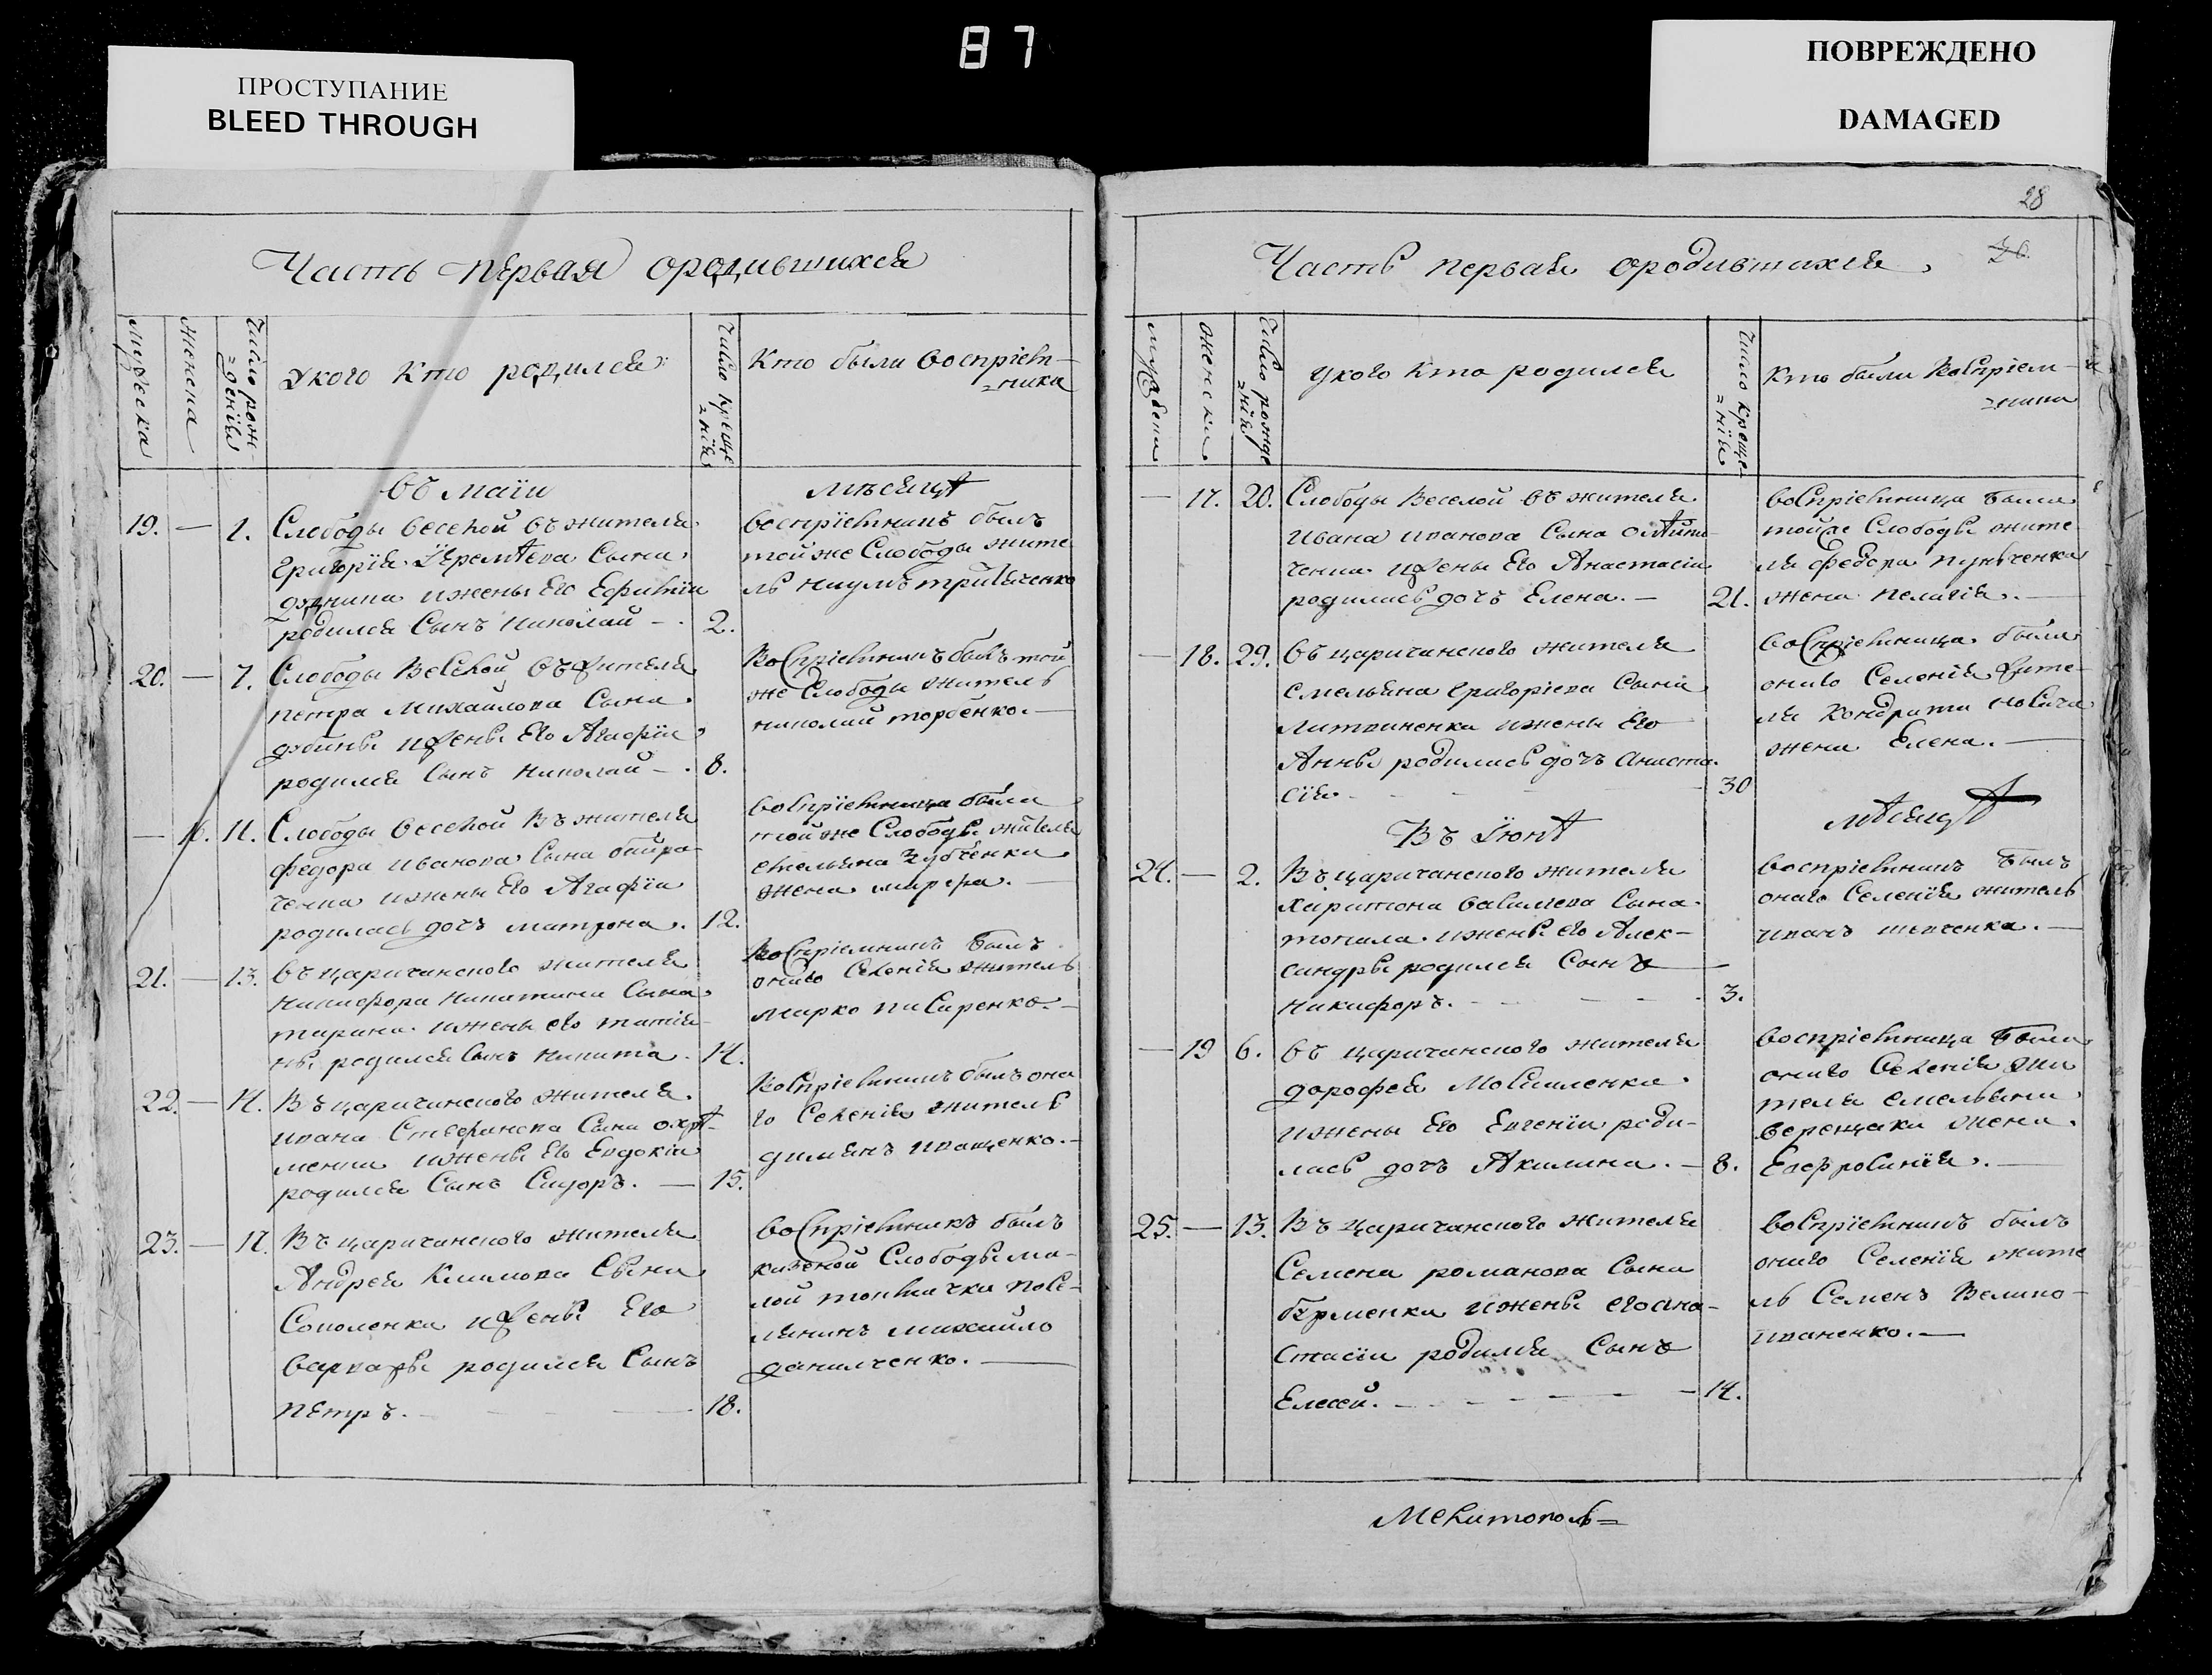 87
ПРОСТУПАНИЕ
BLEED THROUGH
ПОВРЕЖДЕНО
DAMAGED
Часть первая ородившихся
мужеска
женска
Число рож-
=денїя
Укого Кто родился
Число креще
=нїя
Кто были воспрїем-
=ники
въ маїи
мѣсяцѣ
19. — 1.
Слободы веселой въ жителя
Григорїя Яремѣева Сына
и жены Его
родился Сынъ Николай — . 2.
воспрїемникъ былъ
той же Слободы жите
ль наумъ
20. — 7.
Слободы Веселой въ жителя
петра Михайлова Сына
и жены Его Агафїи
родился Сынъ Николай — . 8.
воспрїемникъ былъ той
же Слободы житель
николай торбенко. —
— 16. 11.
Слободы веселой Въ жителя
федора иванова Сына байра-
ченка и жены Его Агафїи
родилась дочъ матрона. 12.
воспрїемница была
той же Слободы жителя
емельяна зубченка
жена марфа. —
21. — 13.
въ царичанского жителя
Никифора Никитина Сына
тарана и жены его татїя-
ны родился Сынъ Никита. 14.
воспрїемникъ былъ
оного Селенїя житель
марко писаренко. —
22. — 14.
Въ царичанского жителя
ивана Стефанова Сына охрѣ-
менка и жены Его Евдокїи
родился Сынъ Сидоръ. — 15.
воспрїемникъ былъ оно
го Селенїя житель
димянъ иващенко. —
23. — 17.
Въ царичанского жителя
Андрея Климова Сына
Соколенка и жены Его
варвары родился Сынъ
пЕтръ. — 18.
воспрїемникъ былъ
казеной Слободы ма-
лой токмачки посе-
лянинъ михайло
данилченко. —
28
26.
Часть первая ородившихся
мужеска
женска
Число рожде
=нїя
укого кто родился
Число креще
=нїя
Кто были Воспрїем-
=ники
— 17. 20.
Слободы Веселой въ жителя
Ивана иванова Сына
ченка и жены Его Анастасїи
родилась дочъ Елена. — 21.
воспрїемница была
тойже Слободы жите
ля федора
жена пелагїя. —
— 18. 29.
въ царичанского жителя
Емельяна григорїева Сына
Литвиненка и жены Его
Анны родилась дочъ Анаста-
сїя. — 30
воспрїемница была
оного Селенїя жите-
ля Кондрата носача
жена Елена. —
Въ Їюнѣ
мѣсяцѣ
24. — 2.
Въ царичанского жителя
Харитона василева Сына
топала и жены его Алек-
сандры родился Сынъ —
Никифоръ. — 3.
воспрїемникъ былъ
оного Селенїя житель
иванъ шевченка. —
— 19 6.
въ царичанского жителя
дорофея Мосиленка
и жены Его Евгенїи роди-
лась дочъ Акилина. — 8.
воспрїемница была
оного Селенїя жи
теля емельяна
верещаки жена
Евфросинїя. —
25. — 13.
Въ царичанского жителя
Семена романова Сына
и жены его ана-
стасїи родился Сынъ
Елесей. — 14.
воспрїемникъ былъ
оного Селенїя жите
ль Семенъ Велико-
иваненко. —
Мелитополь=